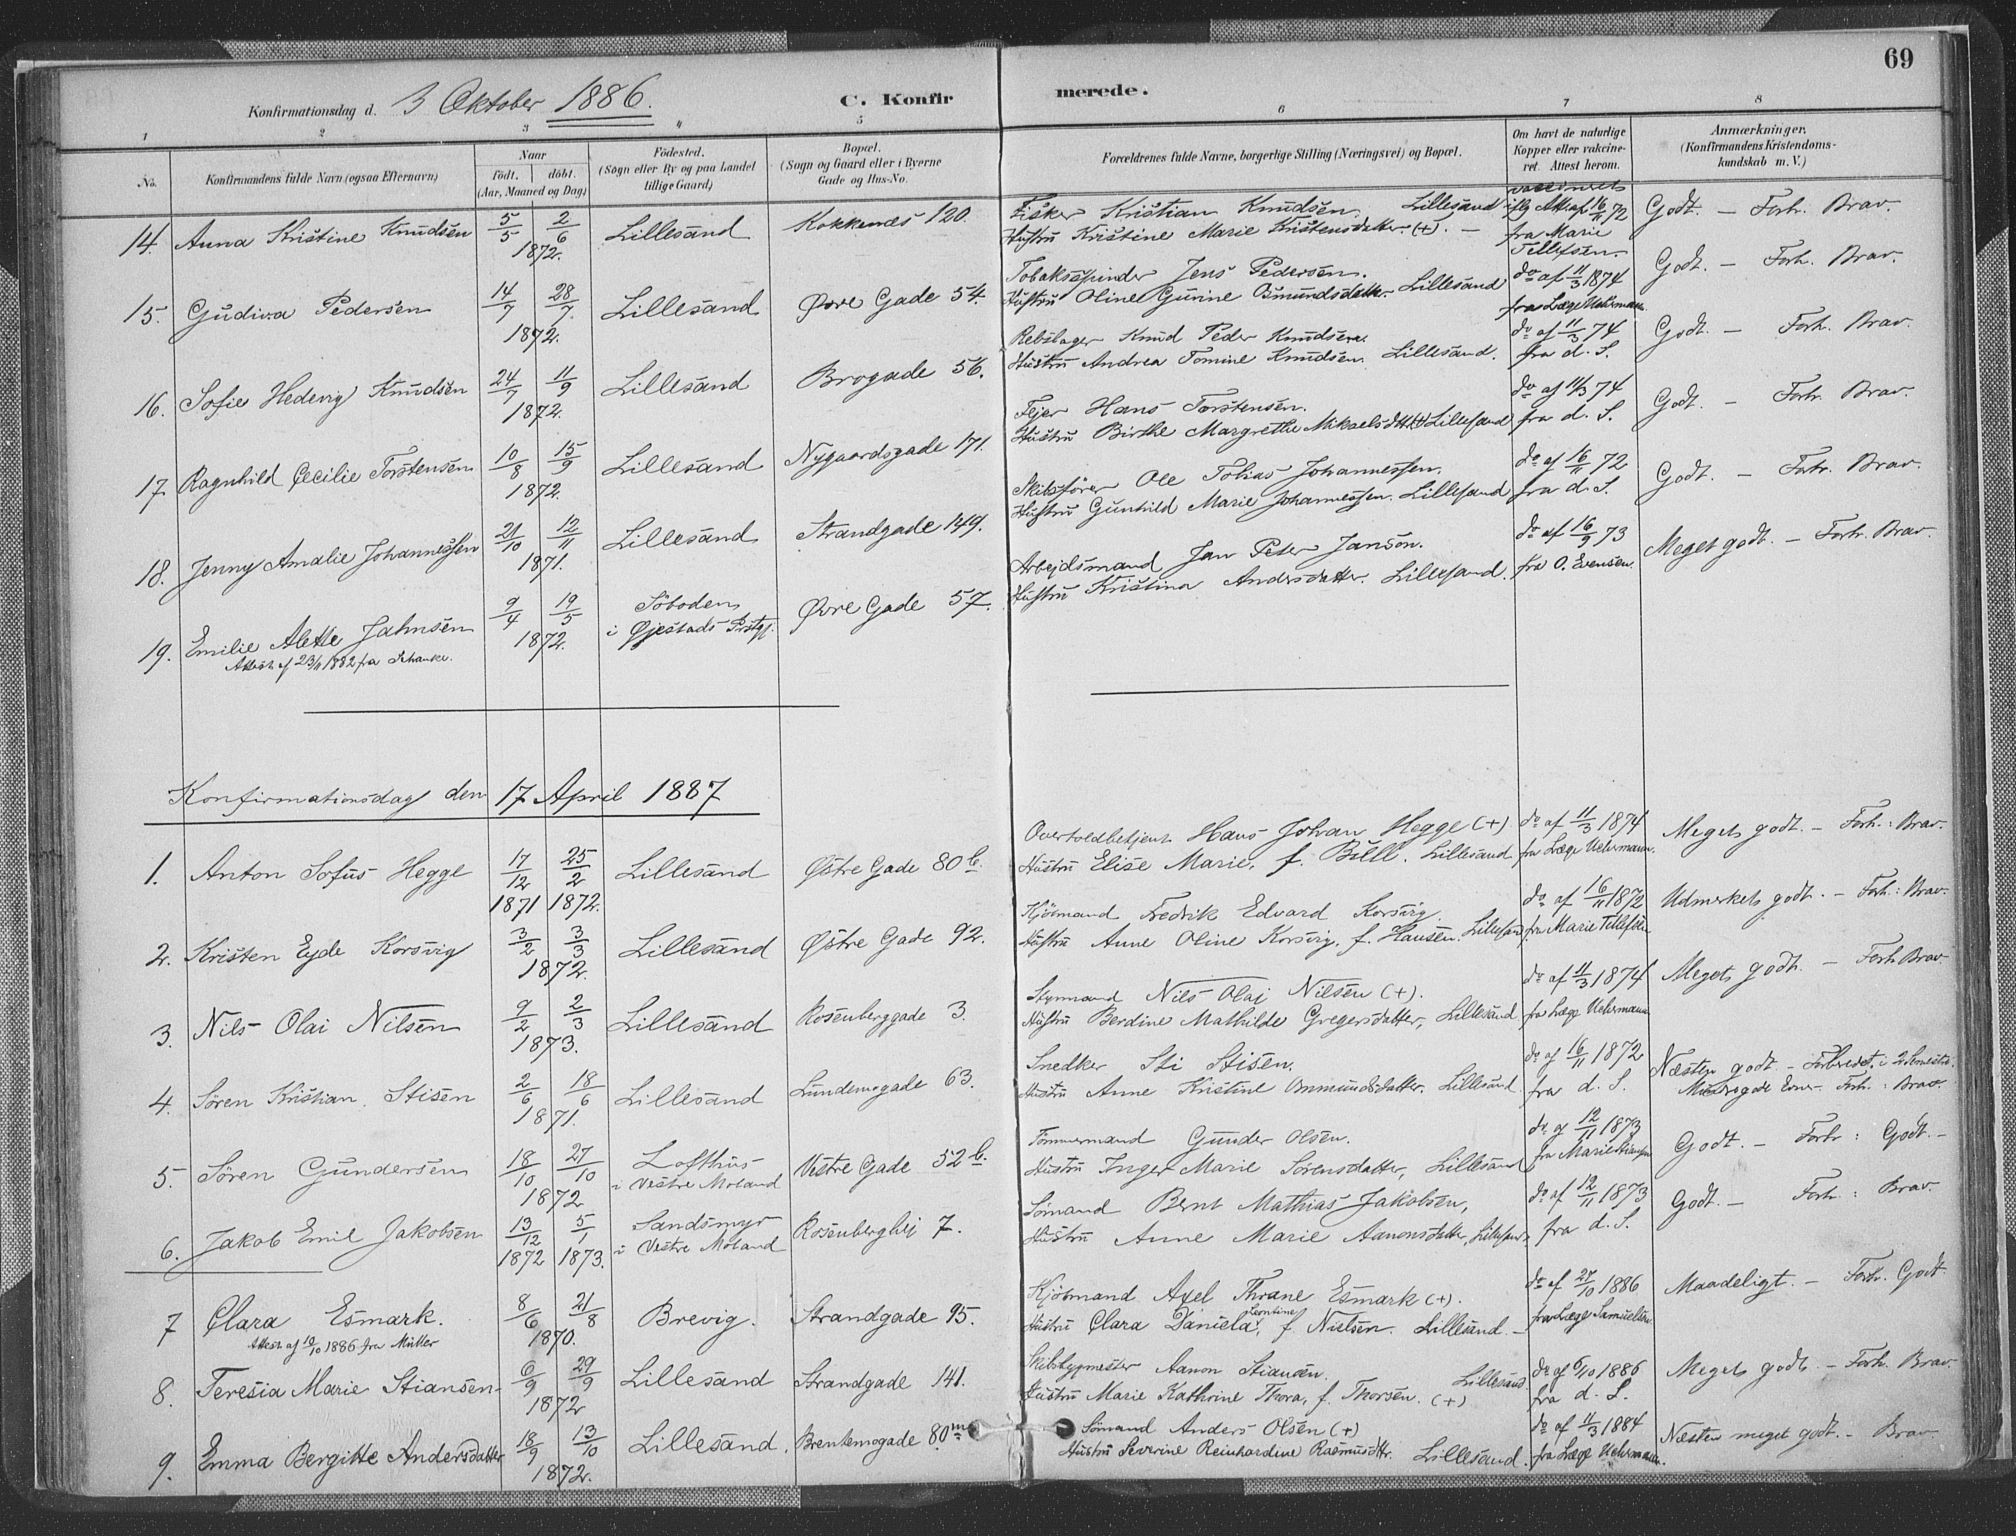 69
Konfirmationsdag d. 3 Oktober 1886. C. Konfirmerede.
1 2 3 4 5 6 7 8
No. Konfirmandens fulde Navn (ogsaa Efternavn) Naar født. døbt. (Aar, Maaned og Dag) Fødested. (Sogn eller By og paa Landet tillige Gaard) Bopæl. (Sogn og Gaard eller i Byerne Gade og Hus-No. Forældrenes fulde Navne, borgerlige Stilling (Næringsvei) og Bopæl. Om havt de naturlige Kopper eller vaccineret. Attest herom. Anmærkninger. (Konfirmandens Kristendomskundskab m. V.)
14. Anna Kristine Knudsen 5/5 2/6 1872. Lillesand Kokkenes 120. Fisker Kristian Knudsen. Lillesand vaccineret iflg Att. af 16/11 72 Godt. – Forh. Brav.
Hustru Kristine Marie Kristensdatter. (+). – fra Marie Tellefsen.
15. Gudiva Pedersen 14/7 28/7 1872. Lillesand Øvre Gade 54. Tobakspinder Jens Pedersen. do af 11/3 1874 Godt. – Forh. Brav.
Hustru Oline Gurine Osmundsdatter. Lillesand fra Læge Uchermann.
16. Sofie Hedevig Knudsen 24/7 11/9 1872. Lillesand Brogade 56. Rebslager Knud Peder Knudsen. do af 11/3 74 Godt. – Forh. Brav.
Hustru Andrea Tomine Knudsen. Lillesand. fra d. S.
17. Ragnhild Cecilie Torstensen 10/8 15/9 1872. Lillesand Nygaardsgade 171. Fejer Hans Torstensen. do af 11/3 74 Godt. – Forh. Brav.
Hustru Birthe Margrethe Mikaelsdtt. (+) Lillesand fra d. S.
18. Jenny Amalie Johannessen 21/10 12/11 1871. Lillesand Strandgade 149. Skibsfører Ole Tobias Johannessen. do af 16/11 72 Godt. – Forh. Brav.
Hustru Gunhild Marie Johannessen. Lillesand fra d. S.
19. Emilie Alette Jahnsen 9/4 19/5 1872. Søboden i Øjestads Prstgj. Øvre Gade 57. Arbejdsmand Jan Peter Janson. do af 16/9 73 Meget godt. – Forh. Brav.
Attest af 23/11 1882 fra Schanke. Hustru Kristina Andersdatter. Lillesand. fra O. Evensen.
Konfirmationsdag den 17 April 1887
1. Anton Sofus Hegge 17/12 1871 25/2 1872. Lillesand Østre Gade 80 b. Overtoldbetjent Hans Johan Hegge (+) do af 11/3 1874 Meget godt. – Forh.: Brav.
Hustru Elise Marie, f. Bille. Lillesand fra Læge Uchermann.
2. Kristen Eyde Korsvig 3/2 3/3 1872. Lillesand Østre Gade 92. Kjøbmand Fredrik Edvard Korsvig. do af 16/11 1872 Udmerket godt. – Forh.: Brav.
Hustru Anne Oline Korsvig, f. Hansen. Lillesand fra Marie Tellefsen
3. Nils Olai Nilsen 9/2 2/3 1873. Lillesand Rosenberggade 3. Styrmand Nils Olai Nilsen (+). do af 11/3 1874 Meget godt. – Forh. Brav.
Hustru Berdine Mathilde Gregersdatter, Lillesand fra Læge Uchermann
4. Søren Kristian Stisen 2/6 18/6 1871. Lillesand Lundemogade 63. Snedker Sti Stisen. do af 16/11 1872 Næsten godt – Forberedt i 2 Semestre.
Hustru Anne Kristine Omundsdatter. Lillesand fra d. S. Mindre gode Evner – Forh.: Brav.
5. Søren Gundersen 18/10 27/10 1872 Lofthus i Vestre Moland Vestre Gade 52 b. Tømmermand Gunder Olsen. do af 12/11 1873 Godt. – Forh: Godt. –
Hustru Inger Marie Sørensdatter, Lillesand fra Marie Stiansen
6. Jakob Emil Jakobsen 13/12 1872 5/1 1873. Sandsmyr i Vestre Moland Rosenberghej 7. Sømand Bernt Mathias Jakobsen, do af 12/11 1873 Godt. – Forh: Brav.
Hustru Anne Marie Aanonsdatter, Lillesand fra d. S.
7 Clara Esmark. 8/6 21/8 1870. Brevig. Strandgade 95. Kjøbmand Axel Thrane Esmark (+). do af 27/10 1886 Maadeligt. – Forh. Godt.
Attest af 12/10 1886 fra Müller Hustru Clara Daniela Leontine, f Nielsen. Lillesand. – fra Læge Samuelsen
8. Teresia Marie Stiansen 6/9 29/9 1872 Lillesand Strandgade 141. Skibsbygmester Aanon Stiansen. Lillesand. do af 6/10 1886 Meget godt – Forh. Brav.
Hustru Marie Kathrine Thora, f. Thorsen. (+) fra d. S.
9. Emma Bergitte Andersdatter 18/9 13/10 1872. Lillesand. Brentemogade 80 m. Sømand Anders Olsen (+) do af 11/3 1884 Næsten meget godt. – Brav.
Hustru Severine Reinhardine Rasmusdtr. Lillesand. fra Læge Uchermann.